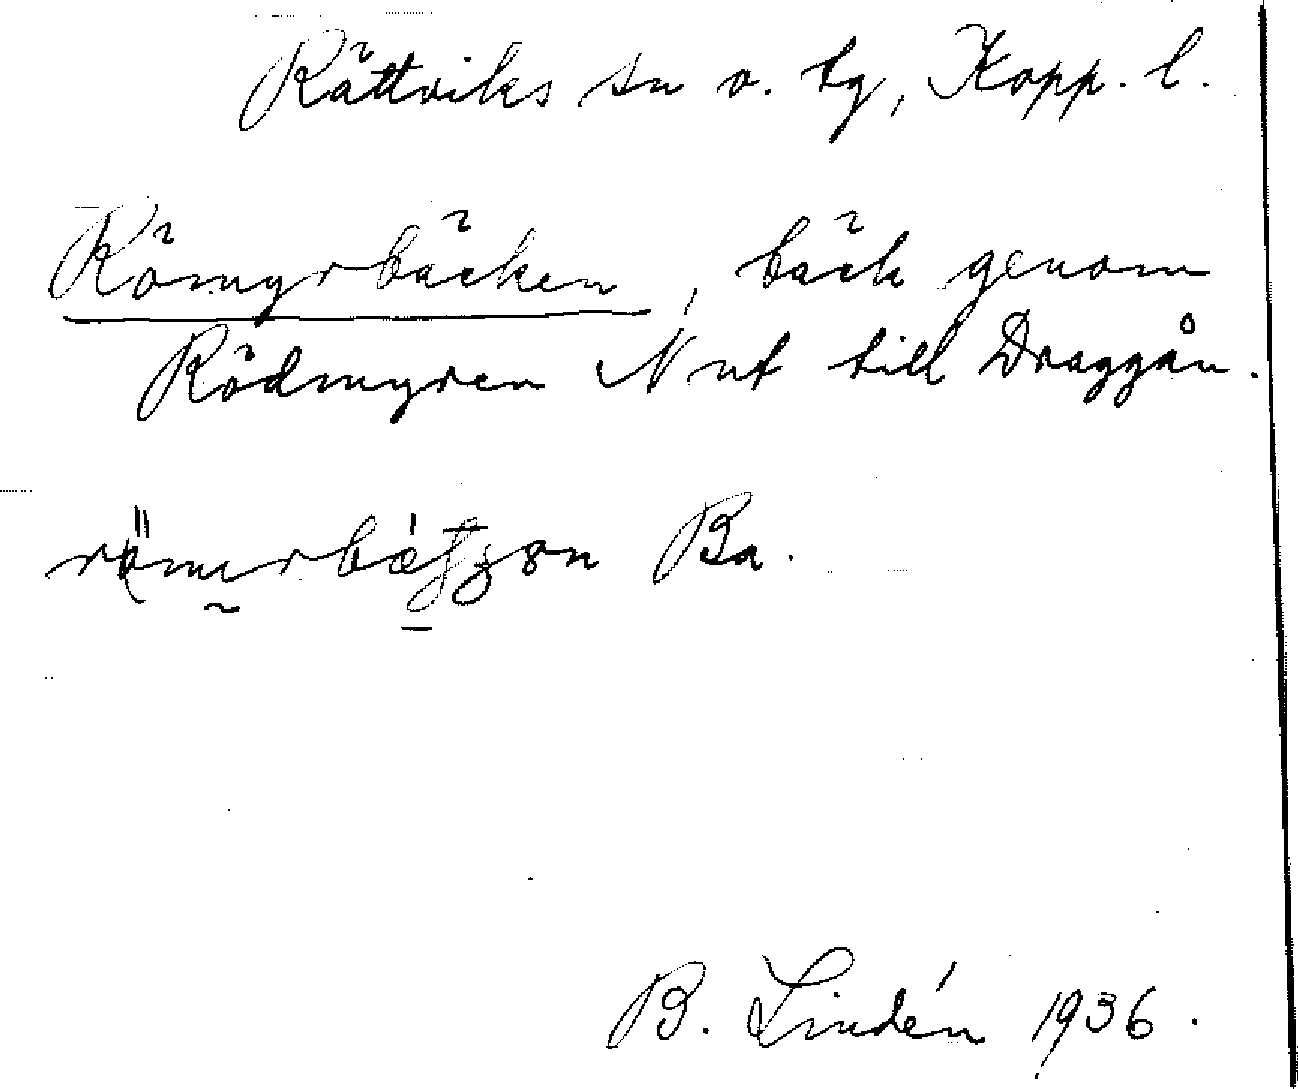 Rättviks sn o. tg, Kopp. l.
Römyrbäcken, bäck genom
Rödmyren N ut till Draggån.
Ba.
B. Lindén 1936.